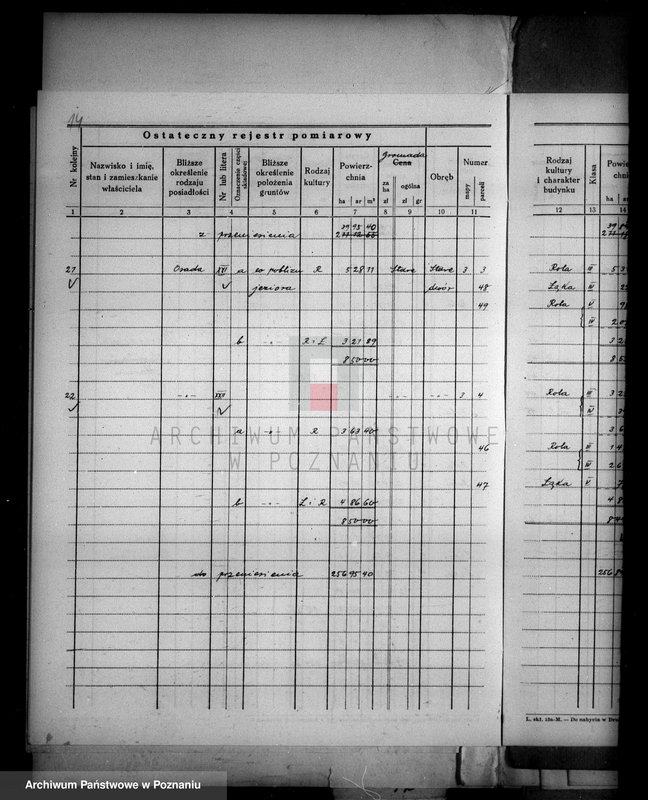 14
Ostateczny rejestr pomiarowy
Nr. kolejny
Nazwisko i imię, stan i zamieszkanie właściciela
Bliższe określenie rodzaju posiadłości
Nr. lub litera
Oznaczenie części składowej
Bliższe określenie położenia gruntów
Rodzaj kultury
Powierzchnia
ha ar m²
Gromada
Cena
za ha zł
ogólna
zł gr
Obręb
Numer
mapy
parceli
Rodzaj kultury i charakter budynku
Klasa
1 2 3 4 5 6 7 8 9 10 11 12 13 14
z przeniesienia 39 95 40
21 Osada XXI a w pobliżu R 5 28 11 Stare Stare 3 3 Rola III
jeziora dwór 48 Łąka III
49 Rola V
IV
b -"- R i Ł 3 21 89
8 50 00
22 -"- XXII -"- -"- 3 4 Rola III
IV
a -"- R 3 63 40
46 Rola III
IV
47 Łąka V
b -"- Ł i R 4 86 60
8 50 00
do przeniesienia 256 95 40
L. skł. 13a-M. — Do nabycia w
ARCHIWUM PAŃSTWOWE
W POZNANIU
Archiwum Państwowe w Poznaniu